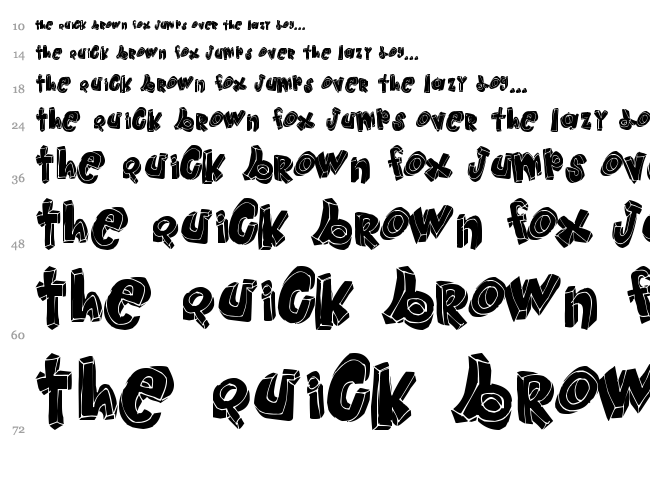 10 the quick brown fox jumps over the lazy dog...
14 the quick brown fox jumps over the lazy dog...
18 the quick brown fox jumps over the lazy dog...
24 the quick brown fox jumps over the lazy do
36 the quick brown fox jumps ov
48 the quick brown fox ju
60 the quick brown f
72 the quick brow